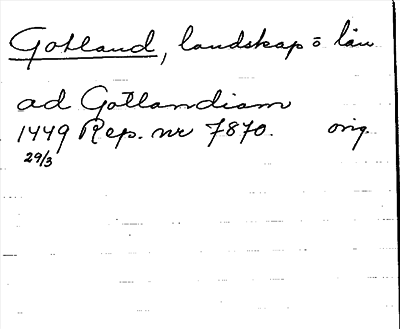 Gotland, landskap o län
ad Gotlandiam
1449 Rep. nr 7870. orig.
29/3